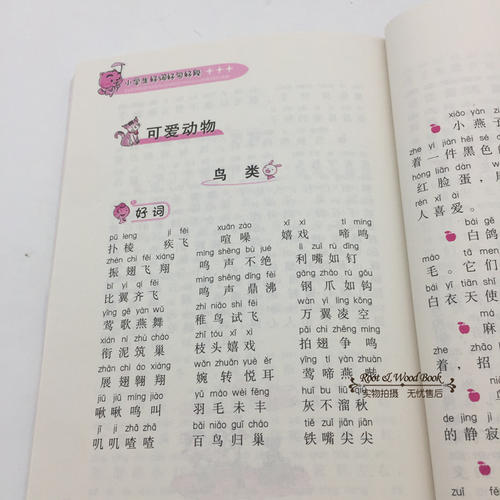 小学生好词好句好段
可爱动物
鸟 类
好词
pū leng jí fēi xuān zào xī xì tí míng
扑棱 疾飞 喧噪 嬉戏 啼鸣
zhèn chì fēi xiáng míng shēng bù jué lì zuǐ rú dīng
振翅飞翔 鸣声不绝 利嘴如钉
bǐ yì qí fēi míng shēng dǐng fèi gāng zhǎo rú gōu
比翼齐飞 鸣声鼎沸 钢爪如钩
yīng gē yàn wǔ zhì niǎo shì fēi wàn yì líng kōng
莺歌燕舞 稚鸟试飞 万翼凌空
xián ní zhù cháo zhī tóu xī xì pāi chì zhēng míng
衔泥筑巢 枝头嬉戏 拍翅争鸣
zhǎn chì áo xiáng wǎn zhuǎn yuè ěr yīng tí yàn zhuàn
展翅翱翔 婉转悦耳 莺啼燕啭
jiū jiū míng jiào yǔ máo wèi fēng huī bu liū qiū
啾啾鸣叫 羽毛未丰 灰不溜秋
jī jī zhā zhā bǎi niǎo guī cháo tiě zuǐ jiān jiān
叽叽喳喳 百鸟归巢 铁嘴尖尖
xiǎo yàn z
小燕子
zhe yī jiàn hēi sè
着一件黑色
hóng liǎn dàn
红脸蛋，
rén xǐ ài
人喜爱。
bái gē
白鸽
máo tā men
毛。它们
bái yī tiān shǐ
白衣天使
má
麻
zhe zhāo
着，招
de jìng jì
的静寂
Root & Wood Book
实物拍摄 无忧售后